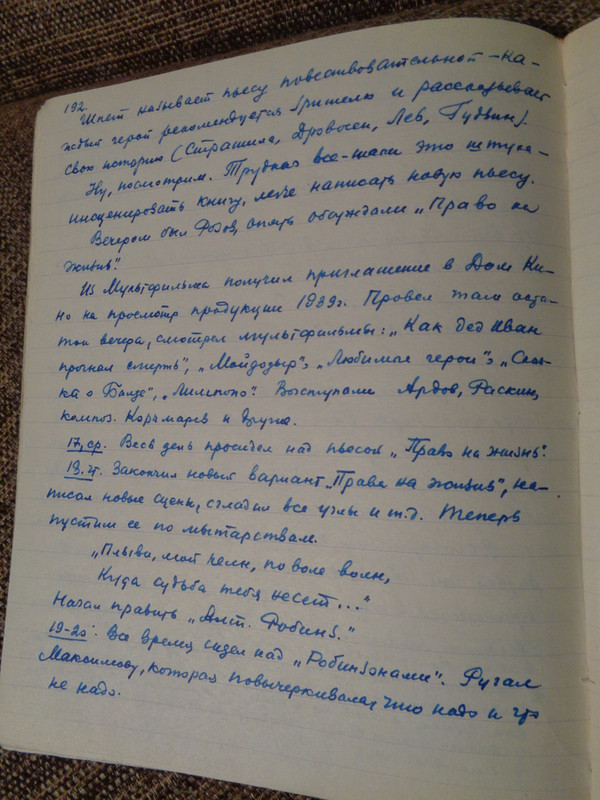 192.
Шпет называет пьесу повествовательной – ка-
ждый герой рекомендуется зрителю и рассказывает
свою историю (Страшила, Дровосек, Лев, Гудвин).
Ну, посмотрим. Трудная все-таки это штука –
инсценировать книгу, легче написать новую пьесу.
Вечером был Розов, опять обсуждали „Право на
жизнь".
Из Мультфильма получил приглашение в Дом Ки-
но на просмотр продукции 1939 г. Провел там оста-
ток вечера, смотрел мультфильмы: „Как дед Иван
прогнал смерть", „Мойдодыр", „Любимые герои", „Сказ-
ка о Балде", „Лимпопо". Выступали Ардов, Раскин,
композ. Корчмарев и другие.
17, ср. Весь день просидел над пьесой „Право на жизнь".
18. ч. Закончил новый вариант „Права на жизнь", на-
писал новые сцены, сгладил все углы и т.д. Теперь
пустим ее по мытарствам.
„Плыви, мой челн, по воле волн,
Куда судьба тебя несет..."
Начал править „Алт. Робинз."
19-20: Все время сидел над „Робинзонами". Ругал
Максимову, которая повычеркивала, что надо и что
не надо.